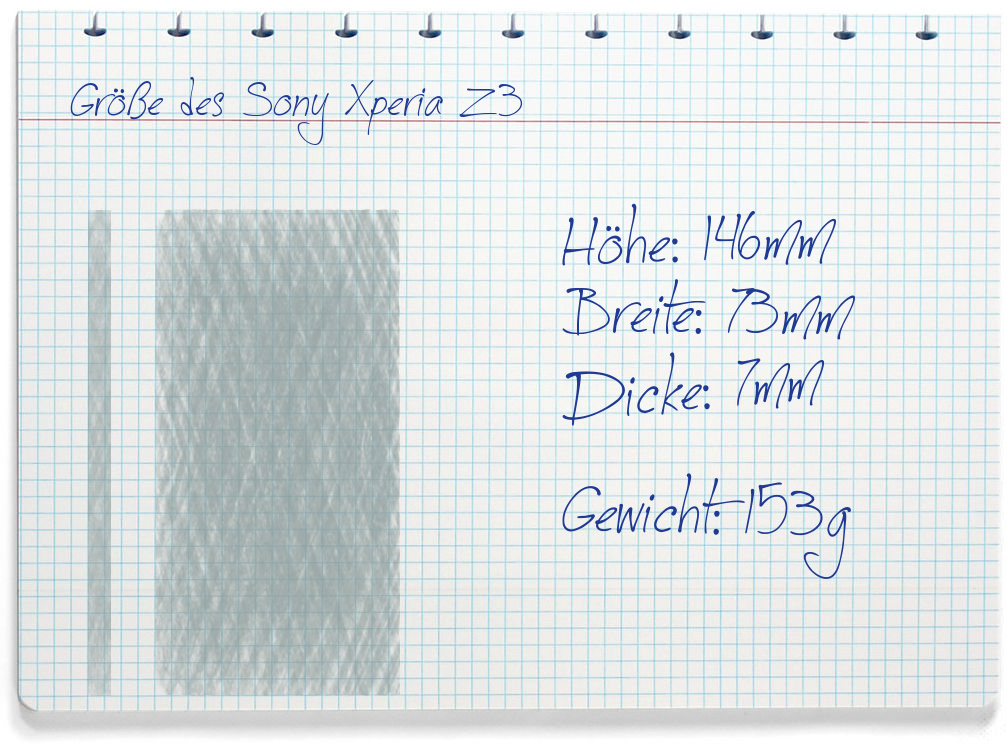 Größe des Sony Xperia Z3
Höhe: 146mm
Breite: 73mm
Dicke: 7mm
Gewicht: 153g